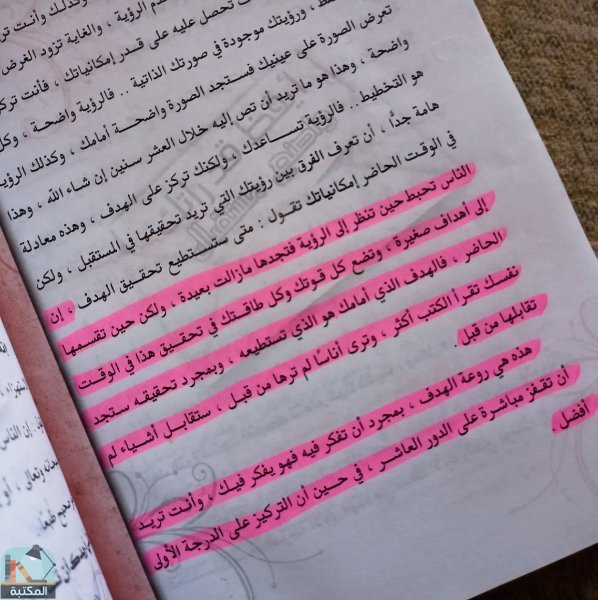 الرؤية ، وكذلك وأنت تر
فقط ، ورؤيتك موجودة في صورتك الذاتية .. فالرؤية واضحة ، وكل
تحصل عليه على قدر إمكانياتك ، فأنت تركز
، والغاية تزود الغرض
تعرض الصورة على عينيك فستجد الصورة واضحة أمامك ، وكذلك الرؤية
واضحة ، وهذا هو ما تريد أن تصل إليه خلال العشر سنين إن شاء الله ، وهذا
هو التخطيط.. فالرؤية تساعدك ، ولكنك تركز على الهدف ، وهذه معادلة
هامة جداً ، أن تعرف الفرق بين رؤيتك التي تريد تحقيقها في المستقبل ، ولكن
في الوقت الحاضر إمكانياتك تقول : متى ستستطيع تحقيق الهدف ، إن
الناس تحبط حين تنظر إلى الرؤية فتجدها مازالت بعيدة ، ولكن حين تقسمها
إلى أهداف صغيرة ، وتضع كل قوتك وكل طاقتك في تحقيق هذا في الوقت
الحاضر ، فالهدف الذي أمامك هو الذي تستطيعه ، وبمجرد تحقيقه ستجد
نفسك تقرأ الكتب أكثر ، وترى أناسًا لم ترها من قبل ، ستقابل أشياء لم
تقابلها من قبل .
هذه هي روعة الهدف ، بمجرد أن تفكر فيه فهو يفكر فيك ، وأنت تريد
أن تقفز مباشرة على الدور العاشر ، في حين أن التركيز على الدرجة الأولى
أفضل .
إن الناس
المكتبة